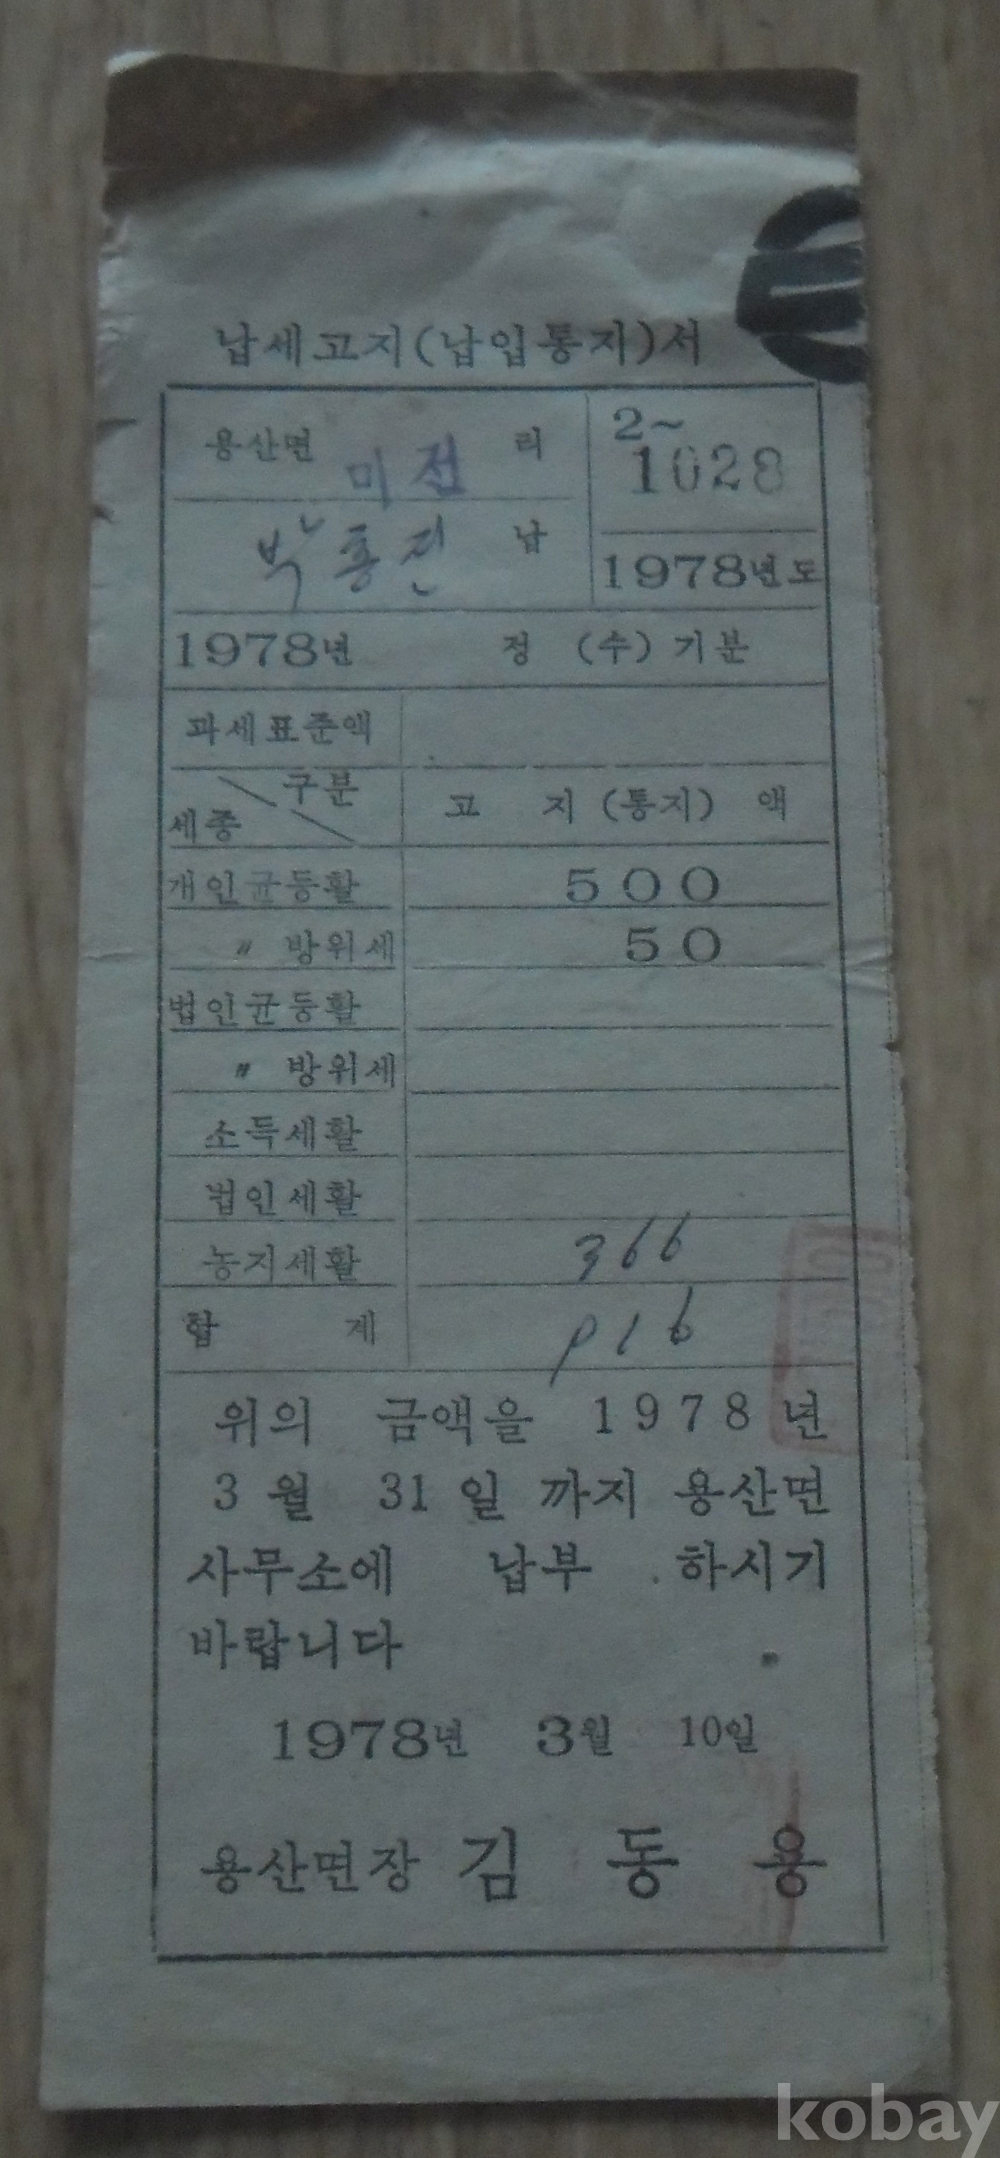 납세고지(납입통지)서
용산면 미전 리
2~
1028
박흥진 납
1978년도
1978년 정 (수) 기분
과세표준액
구분
세종
고 지 (통지) 액
개인균등활 500
〃 방위세 50
법인균등활
〃 방위세
소득세활
법인세활
농지세활 366
합 계 916
위의 금액을 1978년
3월 31일 까지 용산면
사무소에 납부 하시기
바랍니다
1978년 3월 10일
용산면장 김동용
kobay